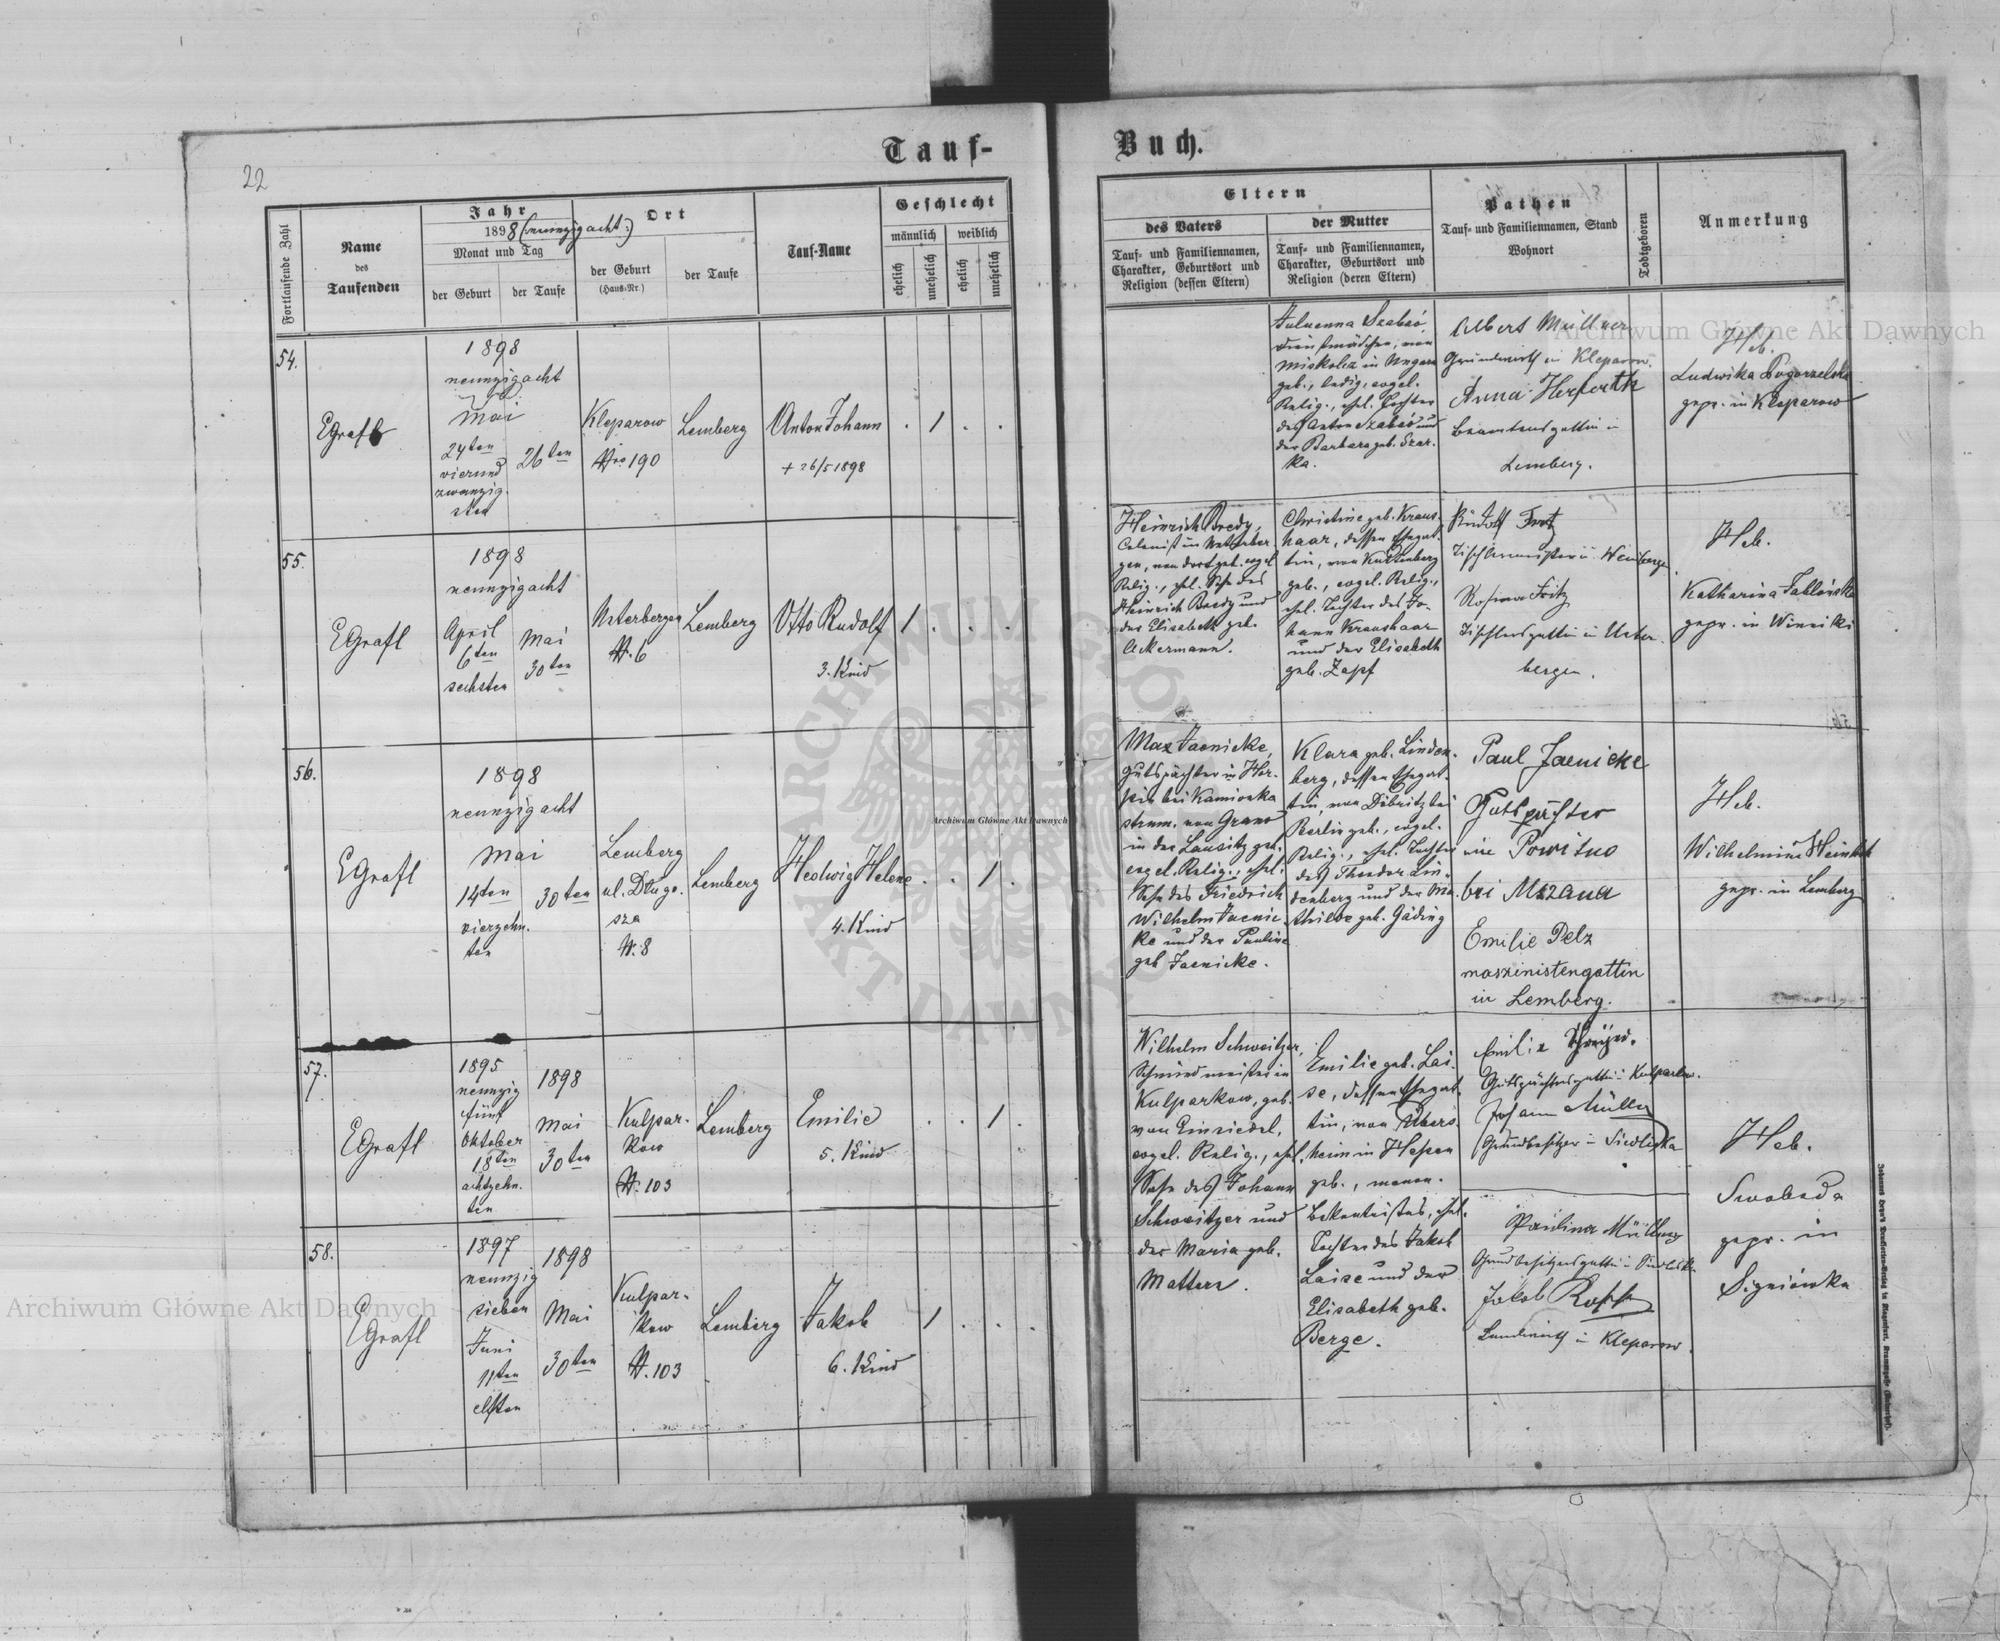 22
Tauf-
Buch.
Fortlaufende Zahl
Name
des
Taufenden
Jahr
1898 (neunzigacht:)
Monat und Tag
der Geburt
der Taufe
Ort
der Geburt
(Haus-Nr.)
der Taufe
Tauf-Name
Geschlecht
männlich
weiblich
ehelich
unehelich
ehelich
unehelich
Eltern
des Vaters
Tauf- und Familiennamen,
Charakter, Geburtsort und
Religion (dessen Eltern)
der Mutter
Tauf- und Familiennamen,
Charakter, Geburtsort und
Religion (deren Eltern)
Pathen
Tauf- und Familiennamen, Stand
Wohnort
Todtgeboren
Anmerkung
54.
EGrafl
1898
neunzigacht
Mai
24ten
vierund
zwanzig-
sten
26ten
Kleparow
Nro 190
Lemberg
Anton Johann
+ 26/5 1898
. 1 . .
Szabó,
Dienstmädchen, von
Miskolcz in Ungarn
geb., ledig, evgel.
Relig., ehel. Tochter
des Anton Szabó und
der Barbara geb. Szar-
ka.
Albert Müllner
Grundwirth in Kleparow.
Anna Herforth
Beamtensgattin in
Lemberg.
Heb.
Ludwika Pogorzelska
gepr. in Kleparow
55.
EGrafl
1898
neunzigacht
April
6ten
sechsten
Mai
30ten
Unterbergen
N. 6
Lemberg
Otto Rudolf
3. Kind
1 . . .
Heinrich Bredy,
Colonist in Unterber
gen, von dort geb. evgel
Relig., ehel. Sohn des
Heinrich Bredy und
der Elisabeth geb.
Ackermann.
Christine geb. Kraus-
haar, dessen Ehegat-
tin, von Kuttenberg
geb., evgel. Relig.,
ehel. Tochter des Jo-
hann Kraushaar
und der Elisabeth
geb. Zapf
Rudolf
Tischlermeister in Weinbergen
Rosina Fritz
Tischlersgattin in Unter-
bergen.
Heb.
Katharina Jablońska
gepr. in Winniki
56.
EGrafl
1898
neunzigacht
Mai
14ten
vierzehn-
ten
30ten
Lemberg
ul. Długo-
sza
N. 8
Lemberg
Hedwig Helene
4. Kind
. . 1 .
Max Jaenicke,
Gutspächter in
bei Kamionka
strum. von
in der Lausitz geb.
evgel. Relig., ehel.
Sohn des Friedrich
Wilhelm Jaenic-
ke und der Pauline
geb Jaenicke.
Klara geb. Linden-
berg, dessen Ehegat-
tin, von Döbritz bei
Berlin geb., evgel.
Relig., ehel. Tochter
des Theodor Lin-
denberg und der Ma
thilde geb. Gäding
Paul Jaenicke
Gutspächter
in Powitno
bei Mszana
Emilie Pelz
maszinistengattin
in Lemberg.
Heb.
Wilhelmine
gepr. in Lemberg
57.
EGrafl
1895
neunzig
fünf
Oktober
18ten
achtzehn-
ten
1898
Mai
30ten
Kulpar-
kow
N. 103
Lemberg
Emilie
5. Kind
. . 1 .
Wilhelm Schweitzer,
Schmiedmeister in
Kulparkow, geb.
von Einsiedel,
evgel. Relig., ehel.
Sohn des Johann
Schweitzer und
der Maria geb.
Mattern.
Emilie geb. Lai-
se, dessen Ehegat-
tin, von
heim in Hessen
geb., menon.
Bekentnisses, ehel.
Tochter des Jakob
Laise und der
Elisabeth geb.
Berge.
Emilie
Gutspächtersgattin in Kulparkow.
Johann Müller
Grundbesitzer in Siedliska
Heb.
Swoboda
gepr. in
Signiówka
58.
EGrafl
1897
neunzig
sieben
Juni
11ten
elften
1898
Mai
30ten
Kulpar-
kow
N. 103
Lemberg
Jakob
6. Kind
1 . . .
Paulina Müller
Grundbesitzersgattin in Siedliska
Jakob Kopp
Landwirth in Kleparow.
Archiwum Główne Akt Dawnych
Archiwum Główne Akt Dawnych
Archiwum Główne Akt Dawnych
ARCHIWUM GŁÓWNE
AKT DAWNYCH